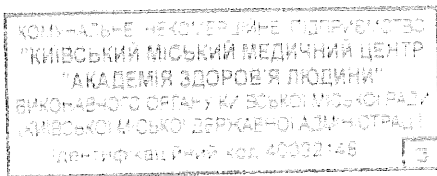 КОМУНАЛЬНЕ НЕКОМЕРЦІЙНЕ ПІДПРИЄМСТВО
"КИЇВСЬКИЙ МІСЬКИЙ МЕДИЧНИЙ ЦЕНТР
"АКАДЕМІЯ ЗДОРОВ'Я ЛЮДИНИ"
ВИКОНАВЧОГО ОРГАНУ КИЇВСЬКОЇ МІСЬКОЇ РАДИ
(КИЇВСЬКОЇ МІСЬКОЇ ДЕРЖАВНОЇ АДМІНІСТРАЦІЇ)
Ідентифікаційний код